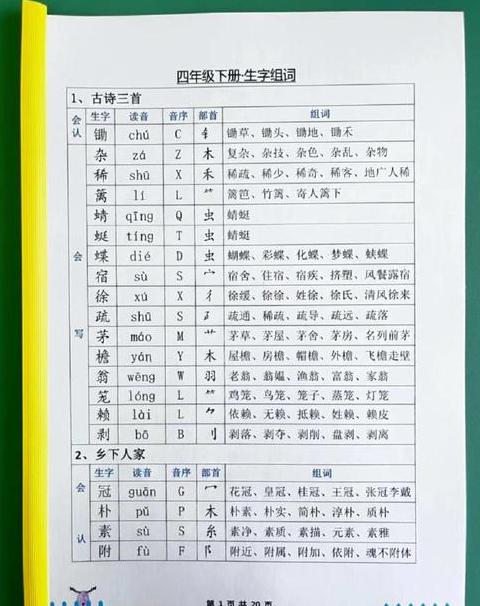 四年级下册·生字组词
1、古诗三首
会认 生字 读音 音序 部首 组词
锄 chú C 钅 锄草、锄头、锄地、锄禾
会写 杂 zá Z 木 复杂、杂技、杂色、杂乱、杂物
稀 shū X 禾 稀疏、稀少、稀奇、稀客、地广人稀
篱 lí L ⺮ 篱笆、竹篱、寄人篱下
蜻 qīng Q 虫 蜻蜓
蜓 tíng T 虫 蜻蜓
蝶 dié D 虫 蝴蝶、彩蝶、化蝶、梦蝶、蛱蝶
宿 sù S 宀 宿舍、住宿、宿疾、挤塑、风餐露宿
徐 xú X 彳 徐缓、徐徐、姓徐、徐氏、清风徐来
疏 shū S 疏通、稀疏、疏导、疏远、疏落
茅 máo M 艹 茅草、茅屋、茅舍、茅房、名列前茅
檐 yán Y 木 屋檐、房檐、帽檐、外檐、飞檐走壁
翁 wēng W 羽 老翁、翁媪、渔翁、富翁、家翁
笼 lóng L ⺮ 鸡笼、鸟笼、笼子、蒸笼、灯笼
赖 lài L ⺈ 依赖、无赖、抵赖、姓赖、赖皮
剥 bō B 刂 剥落、剥夺、剥削、盘剥、剥离
2、乡下人家
会认 生字 读音 音序 部首 组词
冠 guān G 冖 花冠、皇冠、桂冠、王冠、张冠李戴
朴 pǔ P 木 朴素、朴实、简朴、淳朴、质朴
素 sù S 糸 素净、素质、素描、元素、素雅
附 fù F 阝 附近、附属、附加、依附、魂不附体
第 1 页 共 20 页